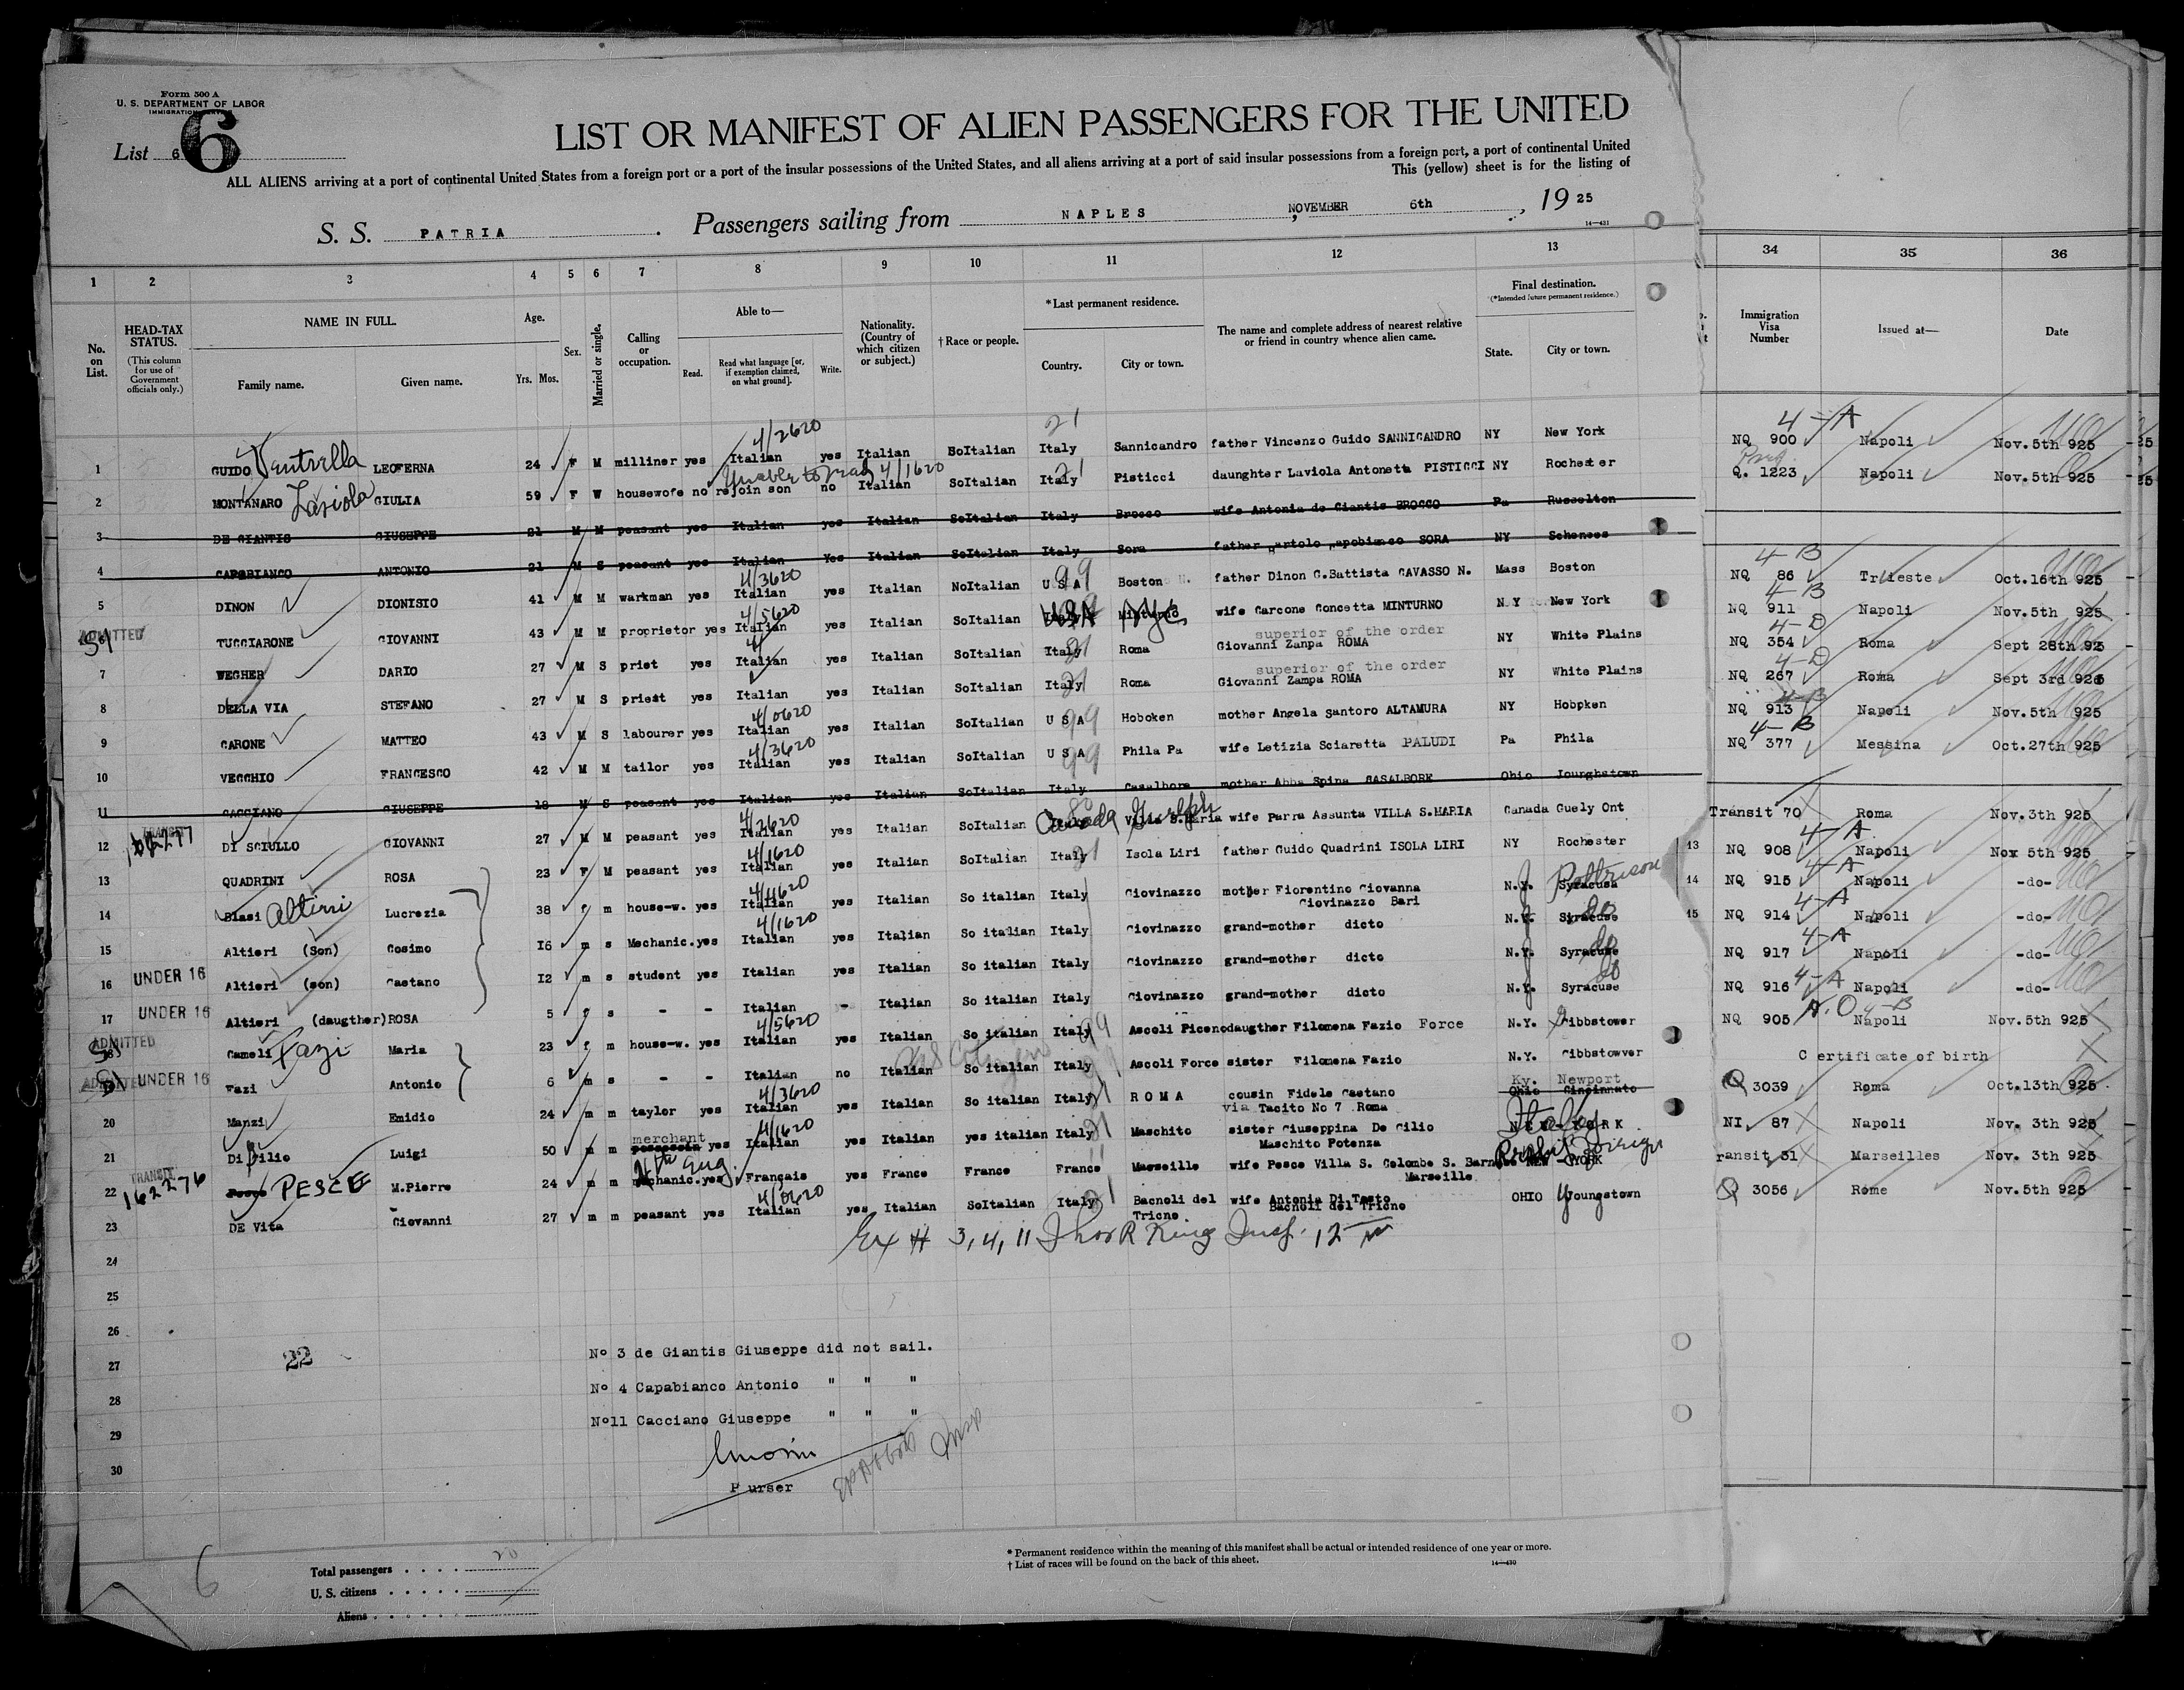 Form 500 A
U. S. DEPARTMENT OF LABOR
IMMIGRATION
List 6 6
LIST OR MANIFEST OF ALIEN PASSENGERS FOR THE UNITED
ALL ALIENS arriving at a port of continental United States from a foreign port or a port of the insular possessions of the United States, and all aliens arriving at a port of said insular possessions from a foreign port, a port of continental United
This (yellow) sheet is for the listing of
S. S. PATRIA. Passengers sailing from NAPLES, NOVEMBER 6th, 19 25
14—431
1 2 3 4 5 6 7 8 9 10 11 12 13 34 35 36
No. on List.
HEAD-TAX STATUS.
(This column for use of Government officials only.)
NAME IN FULL.
Family name. Given name.
Age.
Yrs. Mos.
Sex.
Married or single.
Calling or occupation.
Able to—
Read. Read what language [or, if exemption claimed, on what ground]. Write.
Nationality. (Country of which citizen or subject.)
† Race or people.
*Last permanent residence.
Country. City or town.
The name and complete address of nearest relative or friend in country whence alien came.
Final destination.
(*Intended future permanent residence.)
State. City or town.
Immigration Visa Number
Issued at—
Date
21
4/2620
4-A
1 GUIDO Ventrella LEOFERNA 24 F M milliner yes Italian yes Italian SoItalian Italy Sannicandro father Vincenzo Guido SANNICANDRO NY New York NQ 900 Napoli Nov.5th 925
Unable to read 4/1620
21
2 MONTANARO Laviola GIULIA 59 F W housewofe no rejoin son no Italian SoItalian Italy Pisticci daunghter Laviola Antonetta PISTICCI NY Rochester Q. 1223 Napoli Nov.5th 925
3 DE GIANTIS GIUSEPPE 21 M M peasant yes Italian yes Italian SoItalian Italy Brocco wife Antonia de Giantis BROCCO Pa Russelton
4 CAPOBIANCO ANTONIO 21 M S peasant yes Italian Yes Italian SoItalian Italy Sora father SORA NY
4/3620
99
4-B
5 DINON DIONISIO 41 M M warkman yes Italian yes Italian NoItalian U S A Boston father Dinon G.Battista CAVASSO N. Mass Boston NQ 86 Trieste Oct.16th 925
ADMITTED
4/5620
4-B
6 TUCCIARONE GIOVANNI 43 M M proprietor yes Italian yes Italian SoItalian USA Minturno wife Carcone Concetta MINTURNO N Y New York NQ 911 Napoli Nov.5th 925
superior of the order
4-D
7 WEGHER DARIO 27 M S priet yes Italian yes Italian SoItalian Italy 21 Roma Giovanni Zanpa ROMA NY White Plains NQ 354 Roma Sept 28th 925
superior of the order
4-D
8 DELLA VIA STEFANO 27 M S priest yes Italian yes Italian SoItalian Italy 21 Roma Giovanni Zampa ROMA NY White Plains NQ 267 Roma Sept 3rd 925
4/0620
4-B
9 CARONE MATTEO 43 M S labourer yes Italian yes Italian SoItalian U S A 99 Hoboken mother Angela Santoro ALTAMURA NY Hobpken NQ 913 Napoli Nov.5th 925
4/3620
4-B
10 VECCHIO FRANCESCO 42 M M tailor yes Italian yes Italian SoItalian U S A 99 Phila Pa wife Letizia Sciaretta PALUDI Pa Phila NQ 377 Messina Oct.27th 925
11 CACCIANO GIUSEPPE 18 M S peasant yes Italian yes Italian SoItalian Italy Casalbore mother Abba Spina CASALBORE Ohio Jounghstown
TRANSIT
4/2620
Canada Guelph
12 DI SCIULLO GIOVANNI 27 M M peasant yes Italian yes Italian SoItalian Villa S.Maria wife Parra Assunta VILLA S.MARIA Canada Guely Ont Transit 70 Roma Nov.3th 925
4/1620
4-A
13 QUADRINI ROSA 23 F M peasant yes Italian yes Italian SoItalian Italy 21 Isola Liri father Guido Quadrini ISOLA LIRI NY Rochester 13 NQ 908 Napoli Nox 5th 925
4/1620
4-A
14 Blasi Altieri Lucrezia 38 f m house-w. yes Italian yes Italian So italian Italy Giovinazzo mother Fiorentino Giovanna N.J. Syracusa 14 NQ 915 Napoli -do-
Giovinazzo Bari
4/1620
4-A
15 Altieri (Son) Cosimo I6 m s Mechanic. yes Italian yes Italian So italian Italy Giovinazzo grand-mother dicto N.J. Syracuse 15 NQ 914 Napoli -do-
4-A
16 UNDER 16 Altieri (son) Gaetano I2 m s student yes Italian yes Italian So italian Italy Giovinazzo grand-mother dicto N.J. Syracuse NQ 917 Napoli -do-
4-A
17 UNDER 16 Altieri (daugther) ROSA 5 f s - - Italian - Italian So italian Italy Giovinazzo grand-mother dicto N.J. Syracuse NQ 916 Napoli -do-
ADMITTED
4/5620
4-B
18 Cameli Fazi Maria 23 f m house-w. yes Italian yes Italian So italian Italy 99 Ascoli Piceno daugther Filomena Fazio Force N.Y. Gibbstower NQ 905 Napoli Nov.5th 925
ADMITTED
19 UNDER 16 Fazi Antonio 6 m s - - Italian no Italian So italian Italy Ascoli Force sister Filomena Fazio N.Y. Gibbstowver Certificate of birth
4/3620
Ky. Newport
20 Manzi Emidio 24 m m taylor yes Italian yes Italian So italian Italy 21 ROMA cousin Fidele Gaetano Ohio Cincinnato Q 3039 Roma Oct.13th 925
via Tacito No 7 Roma
merchant
4/1620
21 Di Filio Luigi 50 m m yes Italian yes Italian yes italian Italy 21 Maschito sister Giuseppina De Cilio NEW YORK NI 87 Napoli Nov. 3th 925
Maschito Potenza
TRANSIT
162276
22 Pesce PESCE M.Pierre 24 m m mechanic. yes Français yes France France France Marseille wife Pesce Villa S. Colombe S. Barnabe NEW YORK ransit 31 Marseilles Nov. 3th 925
Marseille
4/0620
23 DE Vita Giovanni 27 m m peasant yes Italian yes Italian SoItalian Italy 21 Bacnoli del Tricno wife Antonia Di Tasto OHIO Youngstown Q 3056 Rome Nov.5th 925
Bacnoli del Tricno
Ex # 3, 4, 11 Thos R King Insp. 12
24
25
26
27 22 No 3 de Giantis Giuseppe did not sail.
28 No 4 Capabianco Antonio " " "
29 No11 Cacciano Giuseppe " " "
30
Purser
6
Total passengers 20
U. S. citizens
Aliens
* Permanent residence within the meaning of this manifest shall be actual or intended residence of one year or more.
† List of races will be found on the back of this sheet.
14—430